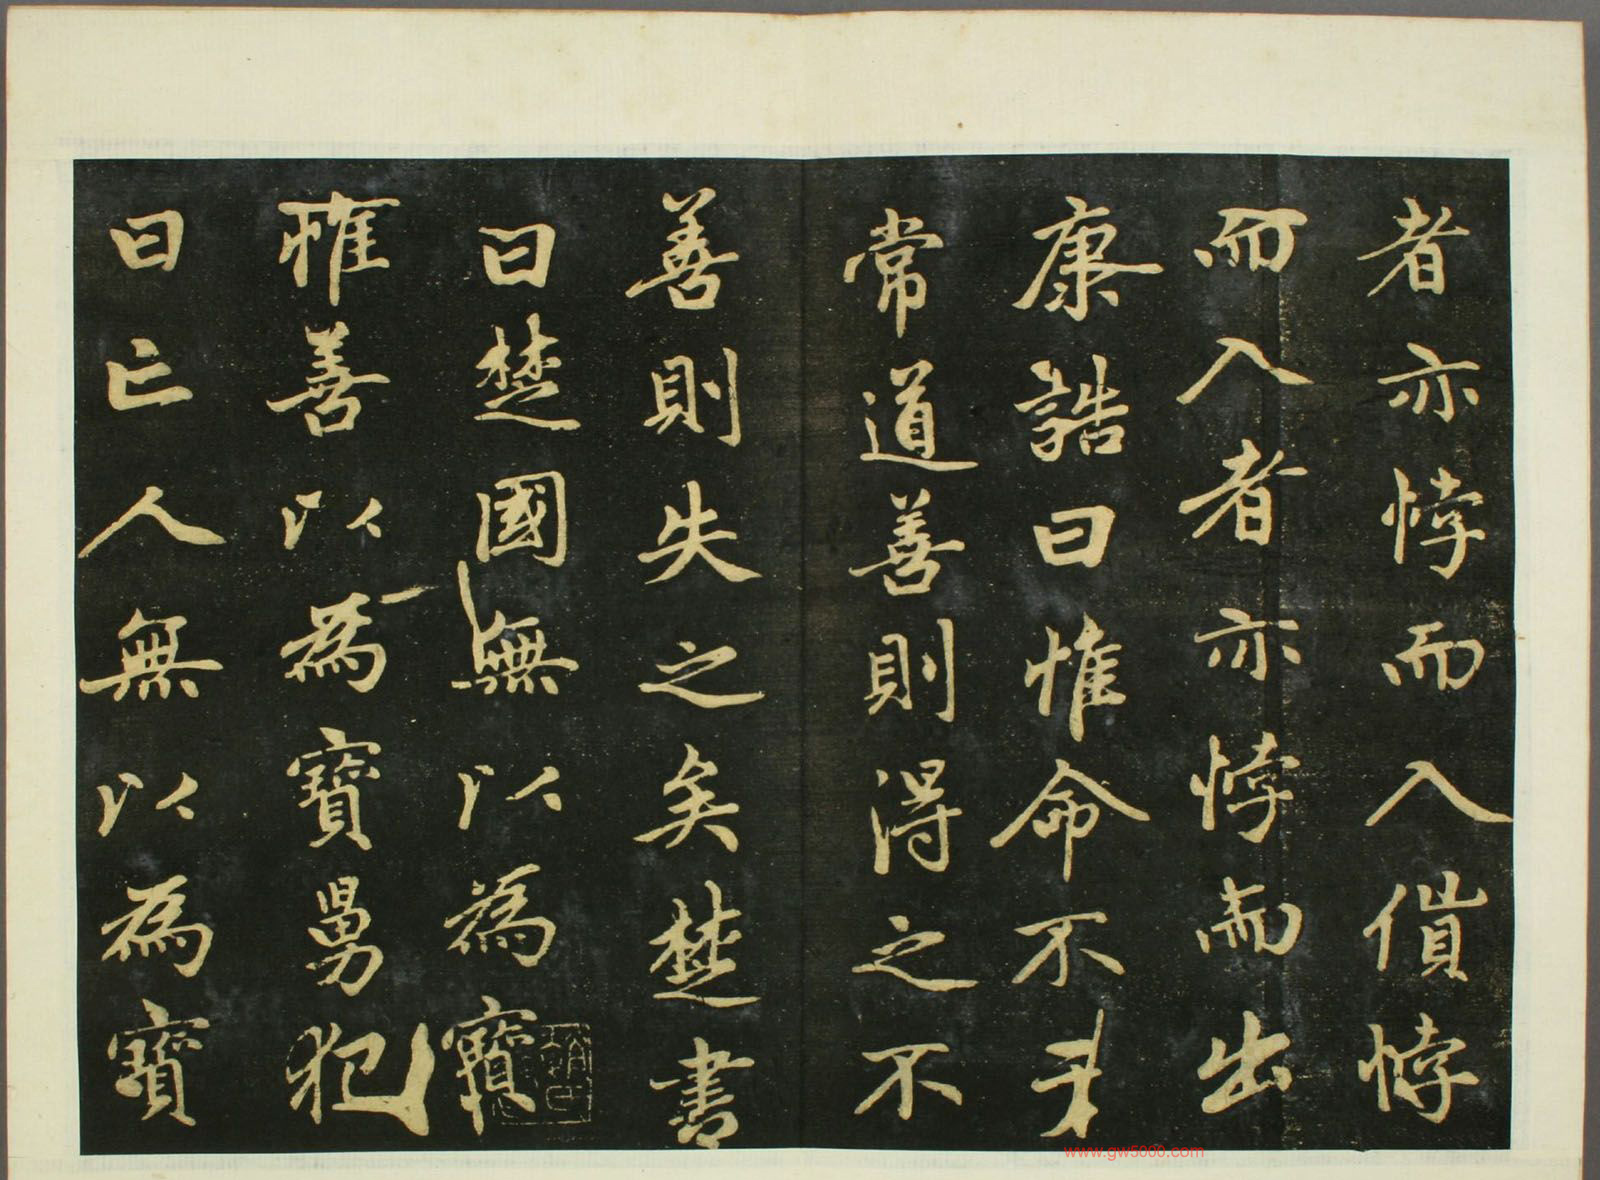 者亦悖而入貨悖
而入者亦悖而出
康誥曰惟命不于
常道善則得之不
善則失之矣楚書
曰楚國無以為寶
惟善以為寶舅犯
曰亡人無以為寶
www.gw5000.com